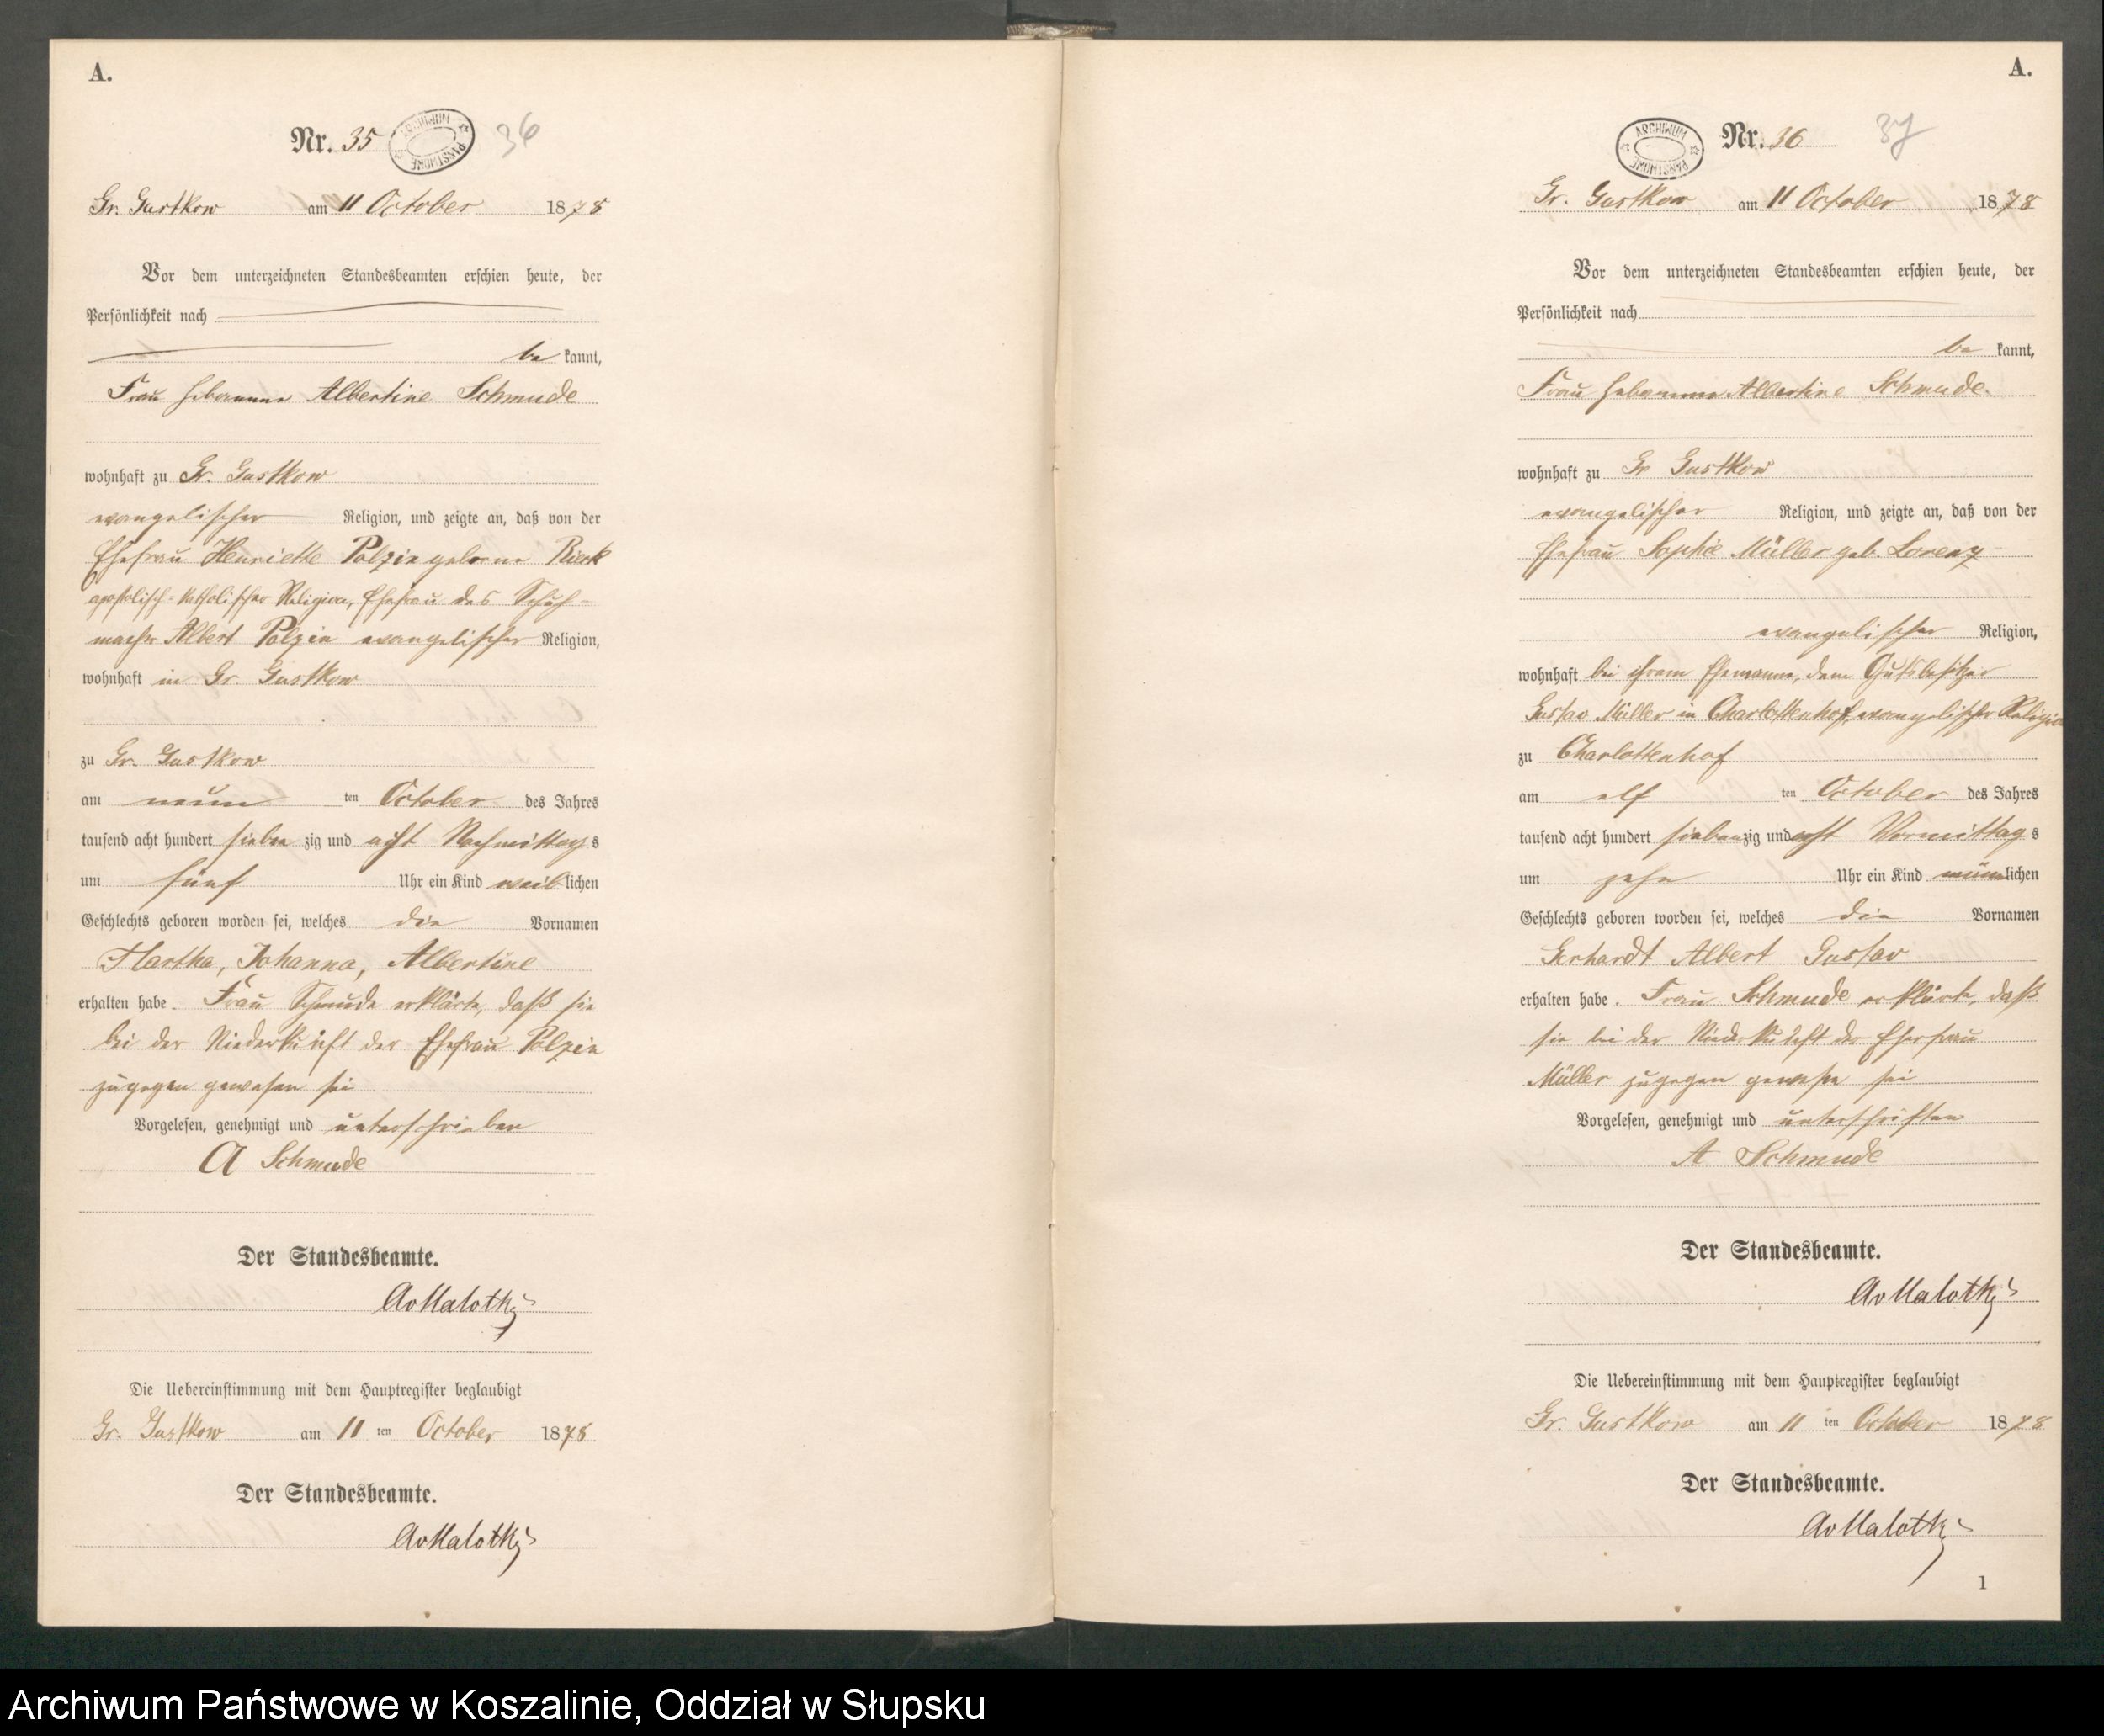 A.
Nr. 35
36
Gr. Gustkow am 11 October 1878
Vor dem unterzeichneten Standesbeamten erschien heute, der
Persönlichkeit nach
be kannt,
Frau Hebamme Albertine Schmude
wohnhaft zu Gr. Gustkow
evangelischer Religion, und zeigte an, daß von der
Ehefrau Henriette Polzin geborne Rieck
apostolisch-katholischer Religion, Ehefrau des Schuh-
macher Albert Polzin evangelischer Religion,
wohnhaft in Gr. Gustkow
zu Gr. Gustkow
am neun ten October des Jahres
tausend acht hundert sieben zig und acht Nachmittag s
um fünf Uhr ein Kind weib lichen
Geschlechts geboren worden sei, welches die Vornamen
Martha, Johanna, Albertine
erhalten habe. Frau Schmude erklärte, daß sie
bei der Niederkunft der Ehefrau Polzin
zugegen gewesen sei
Vorgelesen, genehmigt und unterschrieben
A Schmude
Der Standesbeamte.
AvMalotki
Die Uebereinstimmung mit dem Hauptregister beglaubigt
Gr. Gustkow am 11 ten October 1878
Der Standesbeamte.
AvMalotki
A.
ARCHIWUM PAŃSTWOWE
Nr. 36
37
Gr. Gustkow am 11 October 1878
Vor dem unterzeichneten Standesbeamten erschien heute, der
Persönlichkeit nach
be kannt,
Frau Hebamme Albertine Schmude.
wohnhaft zu Gr Gustkow
evangelischer Religion, und zeigte an, daß von der
Ehefrau Sophie Müller geb. Lorenz
evangelischer Religion,
wohnhaft bei ihrem Ehemanne, dem Gutsbesitzer
Gustav Müller in Charlottenhof, evangelischer Religion
zu Charlottenhof
am elf ten October des Jahres
tausend acht hundert siebenzig und acht Vormittag s
um zehn Uhr ein Kind männlichen
Geschlechts geboren worden sei, welches die Vornamen
Gerhardt Albert Gustav
erhalten habe. Frau Schmude erklärte, daß
sie bei der Niederkunft der Ehefrau
Müller zugegen gewesen sei
Vorgelesen, genehmigt und unterschrieben
A Schmude
Der Standesbeamte.
AvMalotki
Die Uebereinstimmung mit dem Hauptregister beglaubigt
Gr. Gustkow am 11 ten October 1878
Der Standesbeamte.
AvMalotki
1
Archiwum Państwowe w Koszalinie, Oddział w Słupsku